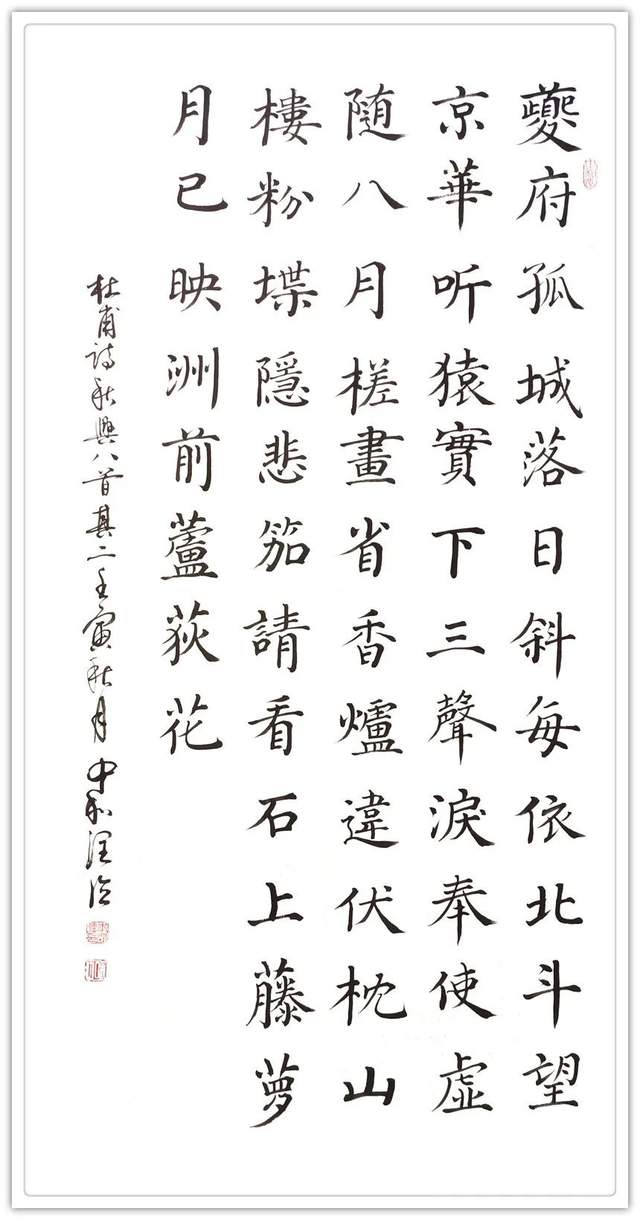 夔府孤城落日斜每依北斗望
京華听猿實下三聲淚奉使虛
随八月槎畫省香爐違伏枕山
樓粉堞隱悲笳請看石上藤萝
月已映洲前蘆荻花
杜甫詩秋興八首其二壬寅秋月中和